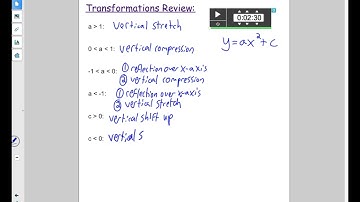 Transformations Review:
0:02:30
a > 1: vertical stretch
y=ax²+c
0 < a < 1: vertical compression
-1 < a < 0: ① reflection over x-axis
② vertical compression
a < -1: ① reflection over x-axis
② vertical stretch
c > 0: vertical shift up
c < 0: vertical s